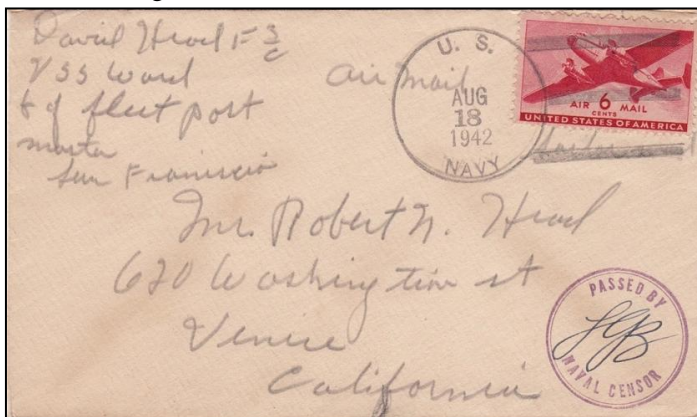 David Head F 3/c
USS Ward
% fleet post
master
San Franciscio
Air Mail
U. S.
AUG
18
1942
NAVY
AIR 6 MAIL
CENTS
UNITED STATES OF AMERICA
Mr. Robert N. Head
620 Washington st
Venice
California
PASSED BY
NAVAL CENSOR